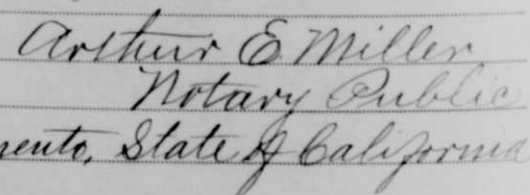 Arthur E Miller
Notary Public
mento, State of California